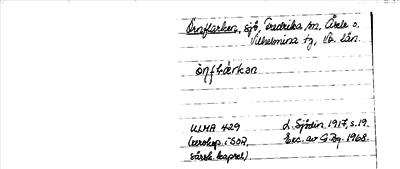 Örnflarken, sjö, Fredrika sn, Åsele o.
Vilhelmina tg, Vb. län.
ö̀nflárkɑn
ULMA 429
(avskep. i SOA,
särsk. kapsel)
L. Sjödin 1917, s. 19.
Exc. av G. Pg. 1968.